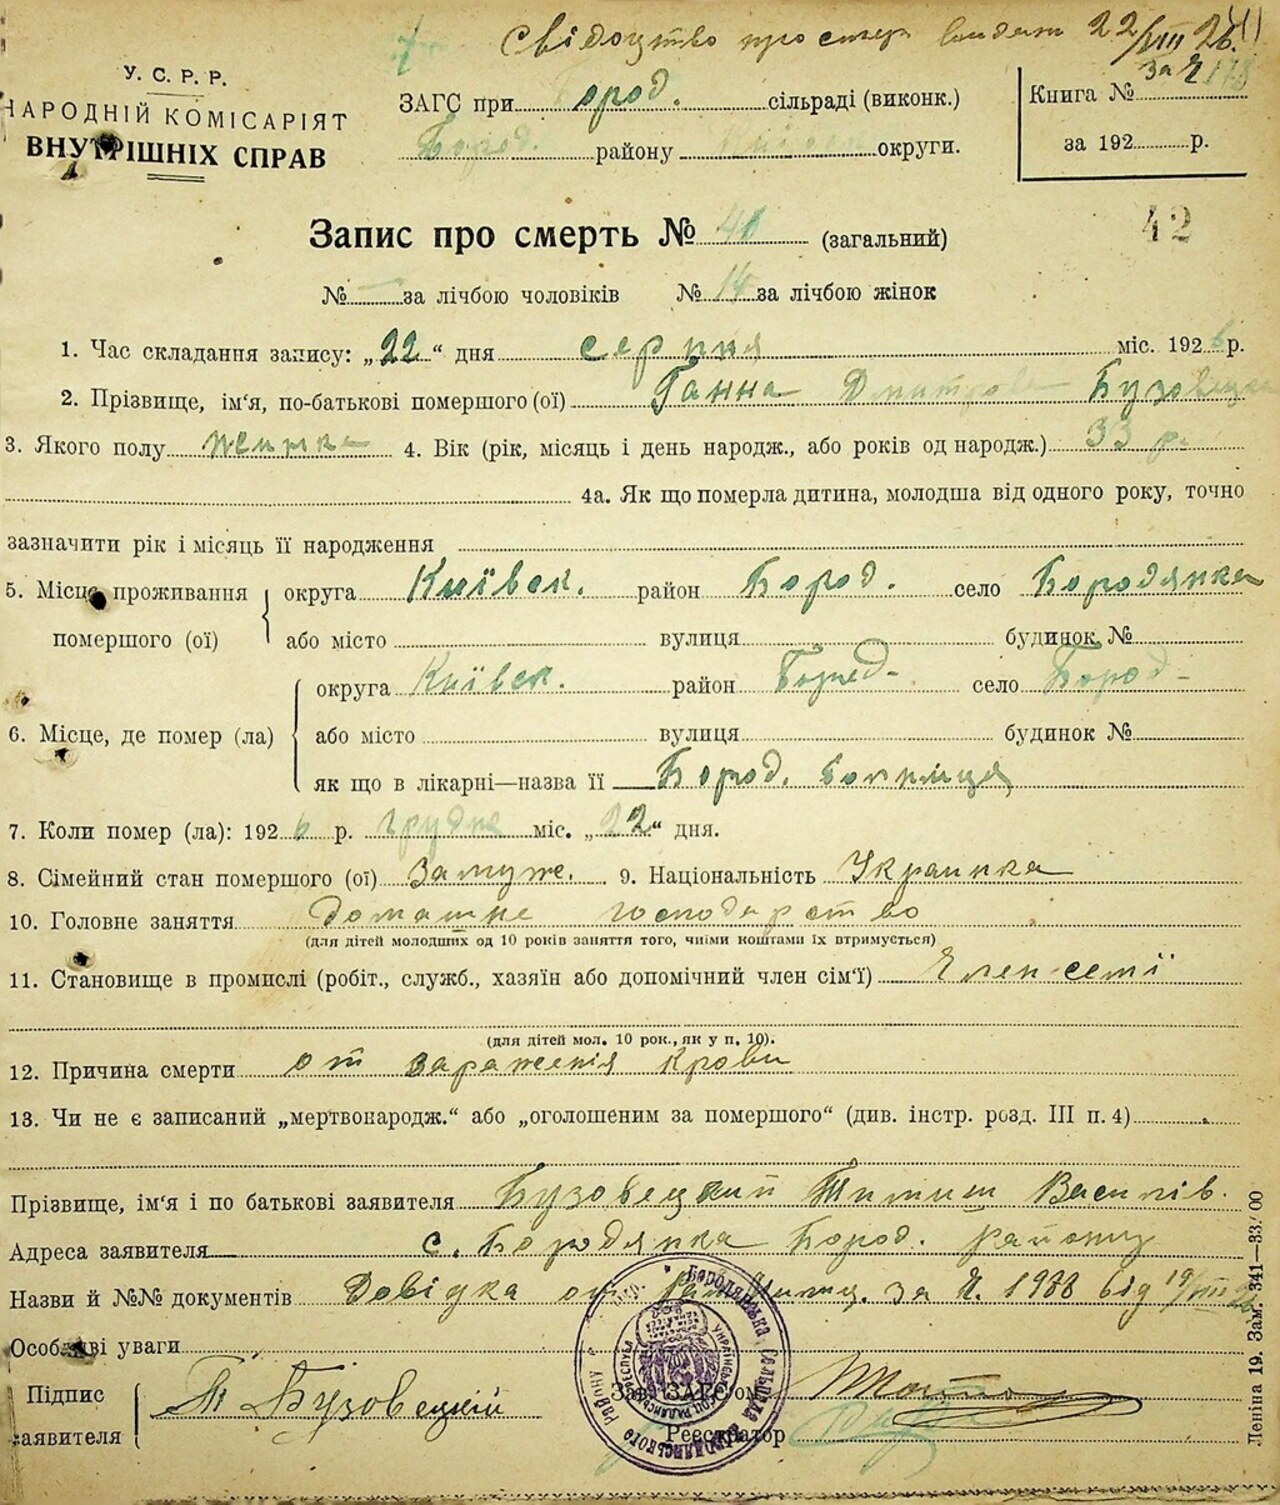 Свідоцтво про смерть видано 22/VIII 26.
за № 178
У. С. Р. Р.
НАРОДНІЙ КОМІСАРІЯТ
ВНУТРІШНІХ СПРАВ
ЗАГС при Бород. сільраді (виконк.)
Бород. району Київськ округи.
Книга №
за 192 р.
42
Запис про смерть № 40 (загальний)
№ — за лічбою чоловіків № 14 за лічбою жінок
1. Час складання запису: „22“ дня серпня міс. 1926 р.
2. Прізвище, ім'я, по-батькові помершого (ої) Ганна Дмитрова Бузовецка
3. Якого полу женська 4. Вік (рік, місяць і день народж., або років од народж.) 33 р.
4а. Як що померла дитина, молодша від одного року, точно
зазначити рік і місяць її народження
5. Місце проживання помершого (ої) округа Київськ. район Бород. село Бородянка
або місто вулиця будинок №
6. Місце, де помер (ла) округа Київськ. район Бород- село Бород-
або місто вулиця будинок №
як що в лікарні—назва її Бород. больниця
7. Коли помер (ла): 1926 р. міс. „22“ дня.
8. Сімейний стан помершого (ої) Замуже. 9. Національність Украинка
10. Головне заняття домашне господарство
(для дітей молодших од 10 років заняття того, чиїми коштами їх втримується)
11. Становище в промислі (робіт., служб., хазяїн або допомічний член сім'ї) Член семї
(для дітей мол. 10 рок., як у п. 10).
12. Причина смерти от зараженія крови
13. Чи не є записаний „мертвонародж.“ або „оголошеним за помершого“ (див. інстр. розд. III п. 4)
Прізвище, ім'я і по батькові заявителя Бузовецкий Тимиш Василів.
Адреса заявителя с. Бородянка Бород. району
Назви й №№ документів Довідка от за № 1988 від 19/VIII 26
Особливі уваги
Підпис заявителя Т Бузовецкій
Зав. ЗАГС'ом
Реєстратор
Леніна 19. Зам. 341—33.000